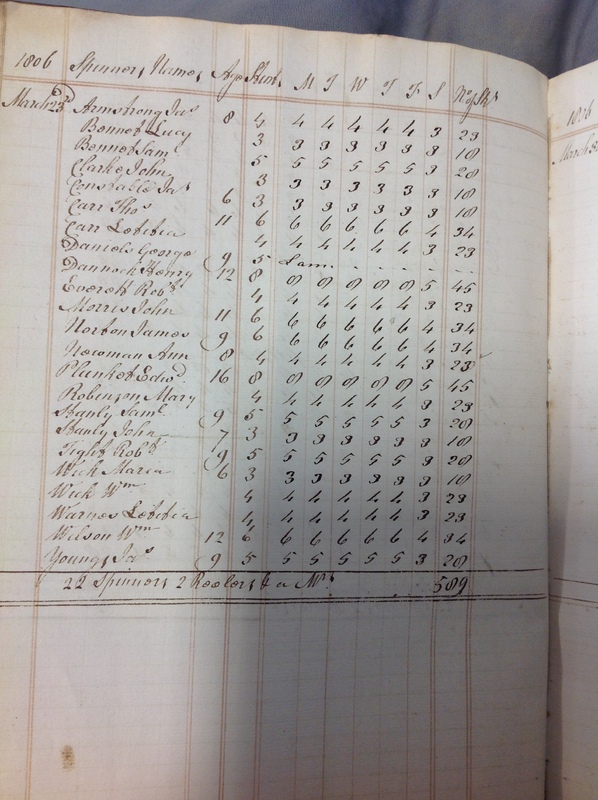 1806 Spinners Names Age Stint M T W T F S No of Sks
March 23d Armstrong Jas 8 4 4 4 4 4 4 3 23
Bennet Lucy 3 3 3 3 3 3 3 18
Bennet Saml 5 5 5 5 5 5 3 28
Clarke John 3 3 3 3 3 3 3 18
Constable Jas 6 3 3 3 3 3 3 3 18
Carr Thos 11 6 6 6 6 6 6 4 34
Carr Letitia 4 4 4 4 4 4 3 23
Daniels George 9 5 Lame - - - - - -
Dannock Henry 12 8 8 8 8 8 8 5 45
Everett Robt 4 4 4 4 4 4 3 23
Morris John 11 6 6 6 6 6 6 4 34
Norton James 9 6 6 6 6 6 6 4 34
Newman Ann 8 4 4 4 4 4 4 3 23
Plunket Edwd 16 8 8 8 8 8 8 5 45
Robinson Mary 4 4 4 4 4 4 3 23
Stanly Saml 9 5 5 5 5 5 5 3 28
Stanly John 7 3 3 3 3 3 3 3 18
Tight Robt 9 5 5 5 5 5 5 3 28
Wick Maria 6 3 3 3 3 3 3 3 18
Wick Wm 4 4 4 4 4 4 3 23
Warnes Letitia 4 4 4 4 4 4 3 23
Wilson Wm 12 6 6 6 6 6 6 4 34
Youngs Jas 9 5 5 5 5 5 5 3 28
22 Spinners 2 Reelers & a Ms 589
1806
March